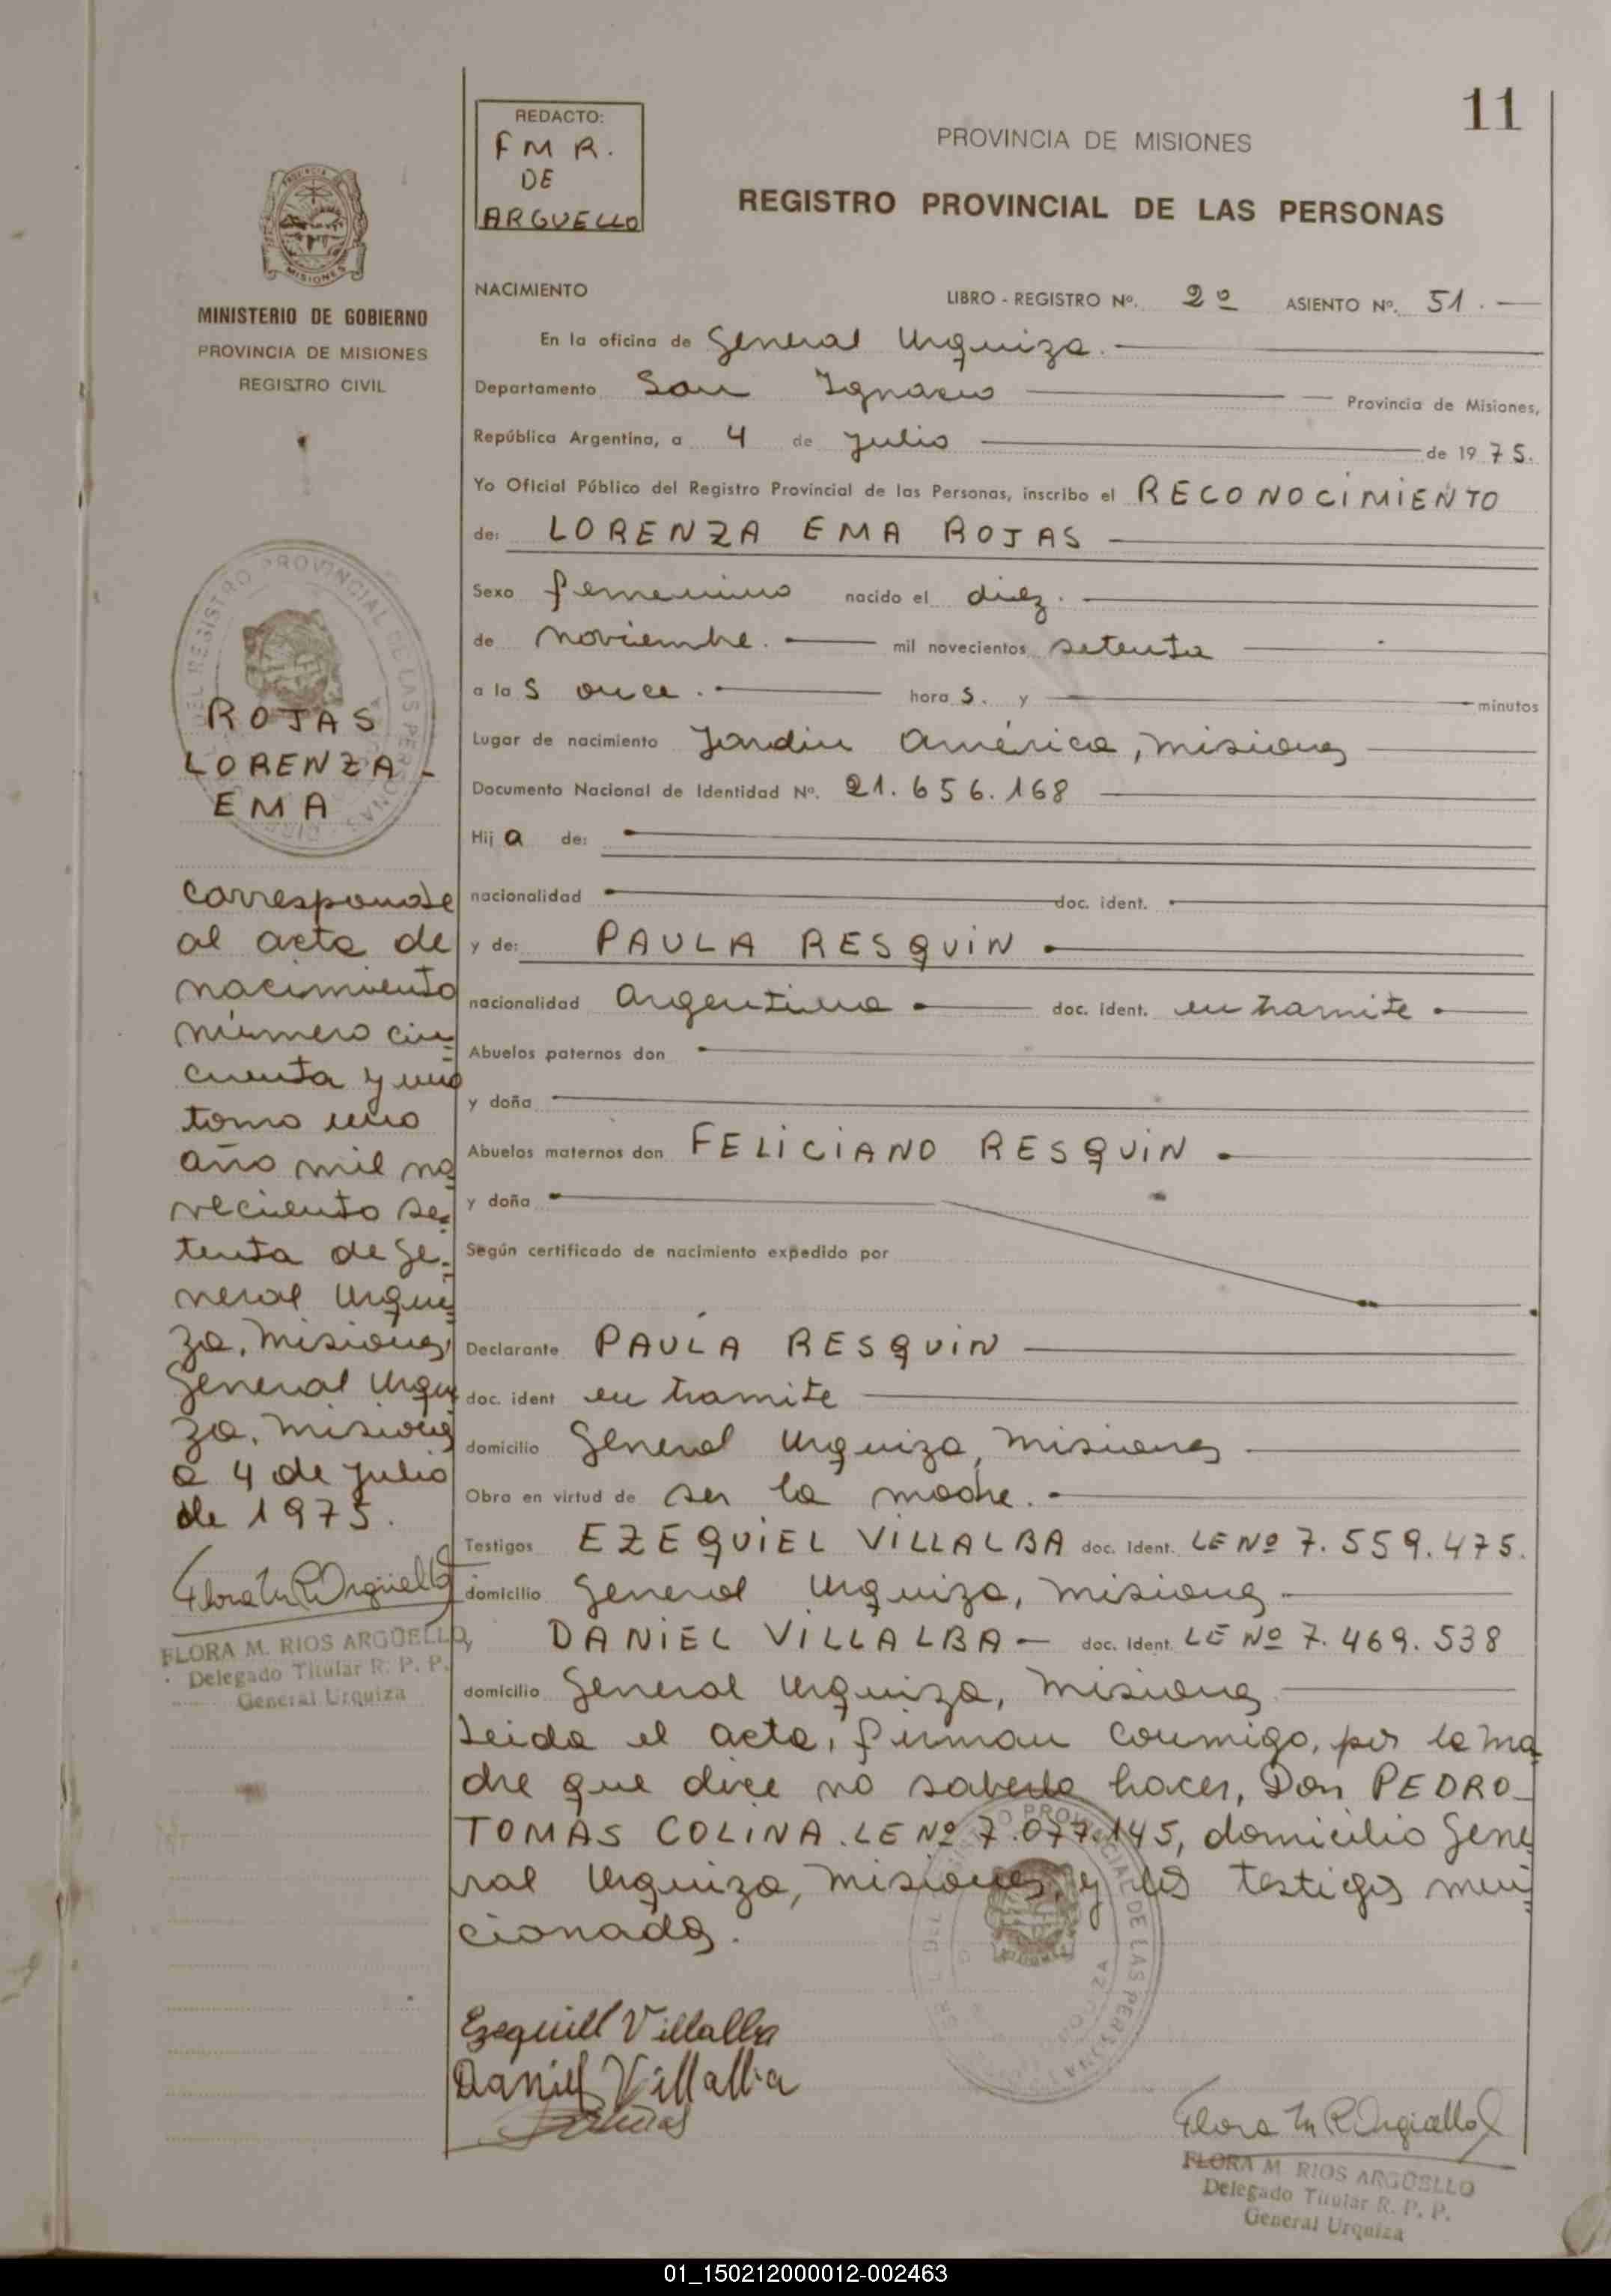 11
REDACTO:
F M R.
DE
ARGUELLO
PROVINCIA DE MISIONES
REGISTRO PROVINCIAL DE LAS PERSONAS
MISIONES
MINISTERIO DE GOBIERNO
PROVINCIA DE MISIONES
REGISTRO CIVIL
NACIMIENTO LIBRO - REGISTRO Nº. 2º ASIENTO Nº. 51.
En la oficina de General Urquiza.
Departamento San Ignacio Provincia de Misiones,
República Argentina, a 4 de julio de 1975.
Yo Oficial Público del Registro Provincial de las Personas, inscribo el RECONOCIMIENTO
de: LORENZA EMA ROJAS
Sexo femenino nacido el diez.
de noviembre. mil novecientos setenta
a las once. horas. y minutos
Lugar de nacimiento Jardin América, Misiones
Documento Nacional de Identidad Nº. 21.656.168
Hija de:
nacionalidad doc. ident.
y de: PAULA RESQUIN
nacionalidad Argentina doc. ident. en tramite
Abuelos paternos don
y doña
Abuelos maternos don FELICIANO RESQUIN
y doña
Según certificado de nacimiento expedido por
Declarante PAULA RESQUIN
doc. ident en tramite
domicilio General Urquiza, Misiones
Obra en virtud de ser la madre.
Testigos EZEQUIEL VILLALBA doc. Ident. LE Nº 7.559.475.
domicilio General Urquiza, Misiones
DANIEL VILLALBA - doc. Ident. LE Nº 7.469.538
domicilio General Urquiza, Misiones
Leida el acta, firman conmigo, por la ma
dre que dice no saberlo hacer, Don PEDRO
TOMAS COLINA. LE Nº 7.077.145, domicilio Gene
ral Urquiza, Misiones, y los testigos men
cionados.
Ezequiell Villalba
Daniel Villalba
Flora M R Argüello
FLORA M. RIOS ARGÜELLO
Delegado Titular R. P. P.
General Urquiza
REGISTRO PROVINCIAL DE LAS PERSONAS
ROJAS
LORENZA -
EMA
corresponde
al acta de
nacimiento
número cin
cuenta y uno
tomo uno
año mil no
veciento se
tenta de Ge
neral Urqui
za, Misiones
General Urqui
za, Misiones
a 4 de julio
de 1975.
Flora M R Argüello
FLORA M. RIOS ARGÜELLO,
Delegado Titular R. P. P.
General Urquiza
01_150212000012-002463